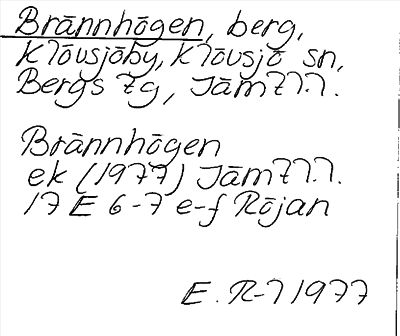 Brännhögen, berg,
Klövsjöby, Klövsjö sn,
Bergs tg, Jämtl.l.
Brännhögen
ek (1977) Jämtl.l.
17 E 6-7 e-f Röjan
E. R-l 1977